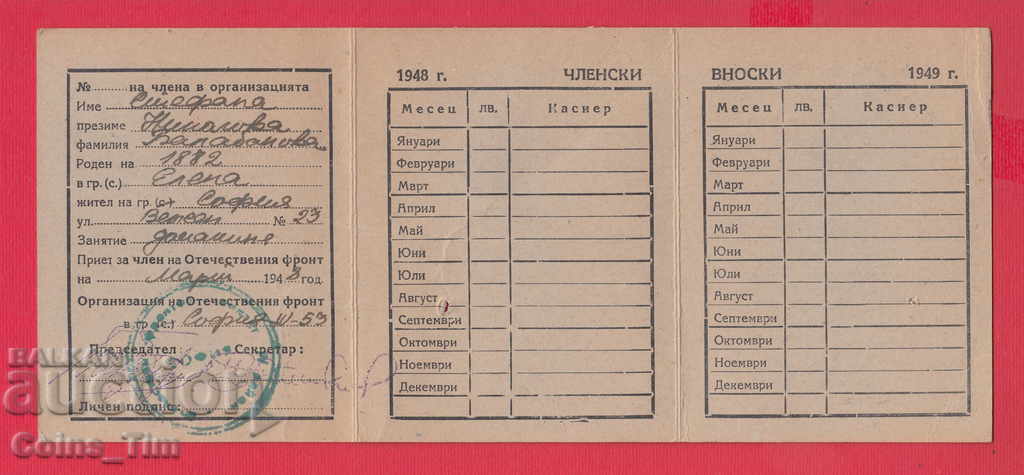 № на члена в организацията
Име Стефана
презиме Николова
фамилия Балабанова
Роден на 1882
в гр. (с.) Елена
жител на гр (с.) София
ул. Вежен № 23
Занятие домакиня
Приет за член на Отечествения фронт
на Март 1948 год.
Организация на Отечествения фронт
в гр (с.) София III-53
Председател: Секретар:
Личен подпис:
1948 г. ЧЛЕНСКИ
Месец лв. Касиер
Януари
Февруари
Март
Април
Май
Юни
Юли
Август
Септември
Октомври
Ноември
Декември
ВНОСКИ 1949 г.
Месец лв. Касиер
Януари
Февруари
Март
Април
Май
Юни
Юли
Август
Септември
Октомври
Ноември
Декември
BALKAN
auction
Coins_Tim